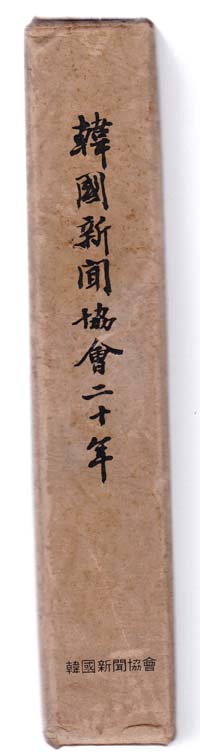 韓國新聞協會二十年
韓國新聞協會